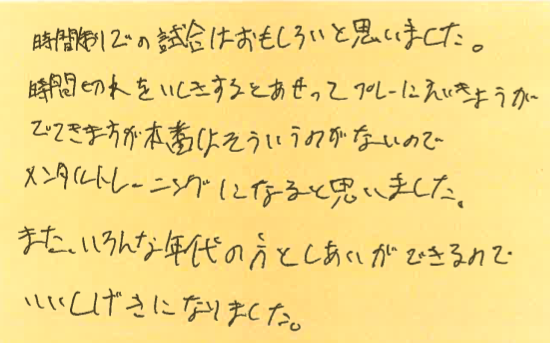 時間制での試合はおもしろいと思いました。
時間切れをいしきするとあせってプレーにえいきょうが
でてきま方が本番はそういうのがないので
メンタルトレーニングになると思いました。
また、いろんな年代の方としあいができるので
いいしげきになりました。